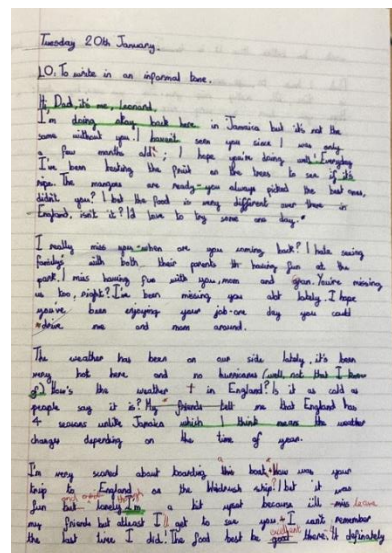 Tuesday 20th January.
LO: To write in an informal tone.
Hi, Dad, it's me, Leonard,
I'm doing okay back here in Jamaica but it's not the
same without you. I haven't seen you since I was only
a few months old; I hope you're doing well. Everyday
I've been testing the fruit on the trees to see if it's
ripe. The mangoes are ready - you always picked the best ones,
didn't you? I bet the food is very different over there in
England, isn't it? I'd love to try some one day.
I really miss you - when are you coming back? I hate seeing
familys with both their parents having fun at the
park. I miss having fun with you, mom and gran. You're missing
us too, right? I've been missing you alot lately. I hope
you've been enjoying your job - one day you could
drive me and mom around.
The weather has been on our side lately, it's been
very hot here and no hurricanes (well, not that I know
of.) How's the weather in England? Is it as cold as
people say it is? My friends tell me that England has
4 seasons unlike Jamaica which I think means the weather
changes depending on the time of year.
I'm very scared about boarding this boat. How was your
trip to England on the Windrush ship? I bet it was
fun but lonely. I'm a bit upset because i'll miss leave
my friends but atleast I'll get to see you. I can't remember
the last time I did! The food best be good excellent there. It definately